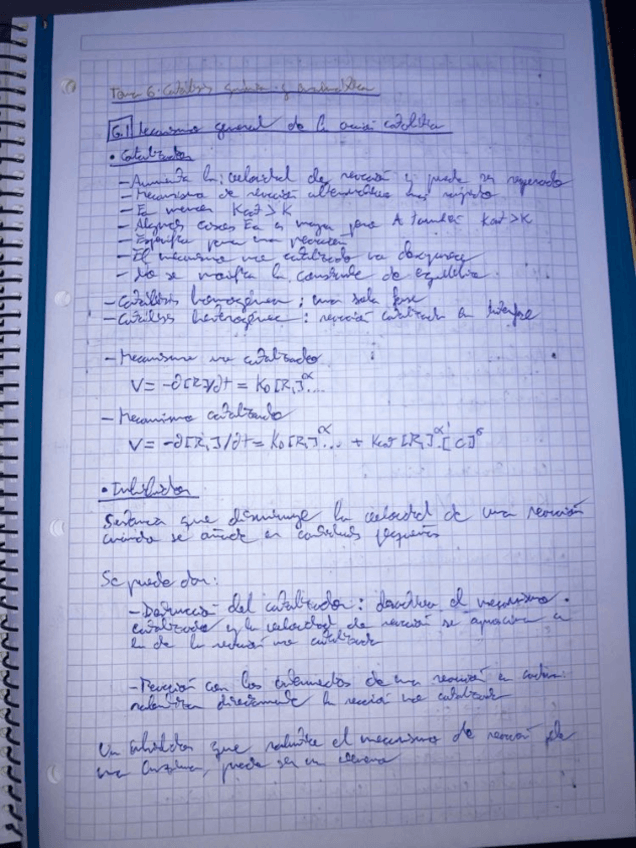 Tema 6: Catálisis química y enzimática
6.1 Mecanismo general de la acción catalítica
• Catalizador
- Aumenta la velocidad de reacción y puede ser regenerado
- Mecanismo de reacción alternativo más rápido
- Ea menor Kcat > K
- Algunos casos Ea es mayor pero A también Kcat > K
- Específico para una reacción
- El mecanismo no catalizado no desaparece
- No se modifica la constante de equilibrio
- Catálisis homogénea: una sola fase
- Catálisis heterogénea: reacción catalizada en interfase
- Mecanismo no catalizado
V = -∂[R₁]/∂t = K₀[R₁]^α...
- Mecanismo catalizado
V = -∂[R₁]/∂t = K₀[R₁]^α... + Kcat [R₁]^α'[C]^σ
• Inhibidor
Sustancia que disminuye la velocidad de una reacción
cuando se añade en cantidades pequeñas
Se puede dar:
- Destrucción del catalizador: el mecanismo
catalizado y la velocidad de reacción se aproxima a
la de la reacción no catalizada
- Reacción con los intermedios de una reacción en cadena:
directamente la reacción no catalizada
Un inhibidor que el mecanismo de reacción de
una enzima, puede ser un veneno